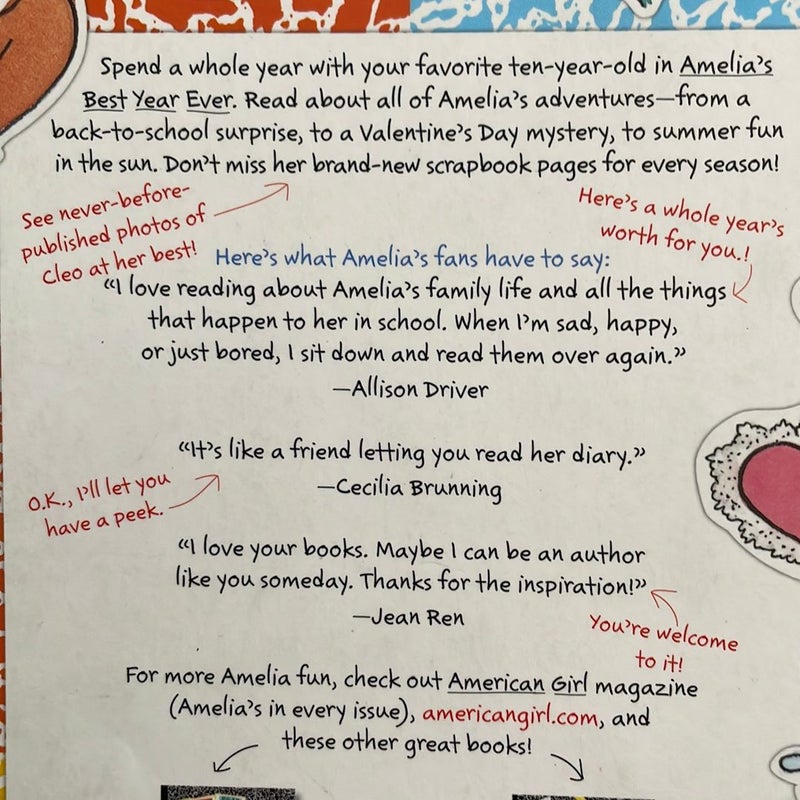 Spend a whole year with your favorite ten-year-old in Amelia's
Best Year Ever. Read about all of Amelia's adventures—from a
back-to-school surprise, to a Valentine's Day mystery, to summer fun
in the sun. Don't miss her brand-new scrapbook pages for every season!
See never-before-
published photos of
Cleo at her best!
Here's a whole year's
worth for you.!
Here's what Amelia's fans have to say:
“I love reading about Amelia's family life and all the things
that happen to her in school. When I'm sad, happy,
or just bored, I sit down and read them over again.”
—Allison Driver
“It's like a friend letting you read her diary.”
—Cecilia Brunning
O.K., I'll let you
have a peek.
“I love your books. Maybe I can be an author
like you someday. Thanks for the inspiration!”
—Jean Ren
You're welcome
to it!
For more Amelia fun, check out American Girl magazine
(Amelia's in every issue), americangirl.com, and
these other great books!